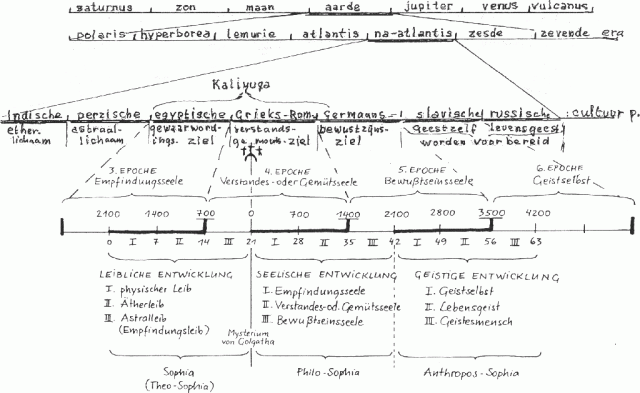 saturnus zon maan aarde jupiter venus vulcanus
polaris hyperborea lemurie atlantis na-atlantis zesde zevende era
Kaliyuga
Indische perzische egyptische Grieks-Rom. Germaans- slavische russisch. :cultuur p.
ether- astraal- gewaarword- verstands- bewustzijns- geestzelf levensgeest
lichaam lichaam ings- ziel gemoeds-ziel ziel worden voorbereid
3. EPOCHE 4. EPOCHE 5. EPOCHE 6. EPOCHE
Empfindungsseele Verstandes-oder Gemütsseele Bewußtseinsseele Geistselbst
2100 1400 700 0 700 1400 2100 2800 3500 4200
0 I 7 II 14 III 21 I 28 II 35 III 42 I 49 II 56 III 63
LEIBLICHE ENTWICKLUNG SEELISCHE ENTWICKLUNG GEISTIGE ENTWICKLUNG
I. physischer Leib I. Empfindungsseele I. Geistselbst
II. Ätherleib II. Verstandes-od. Gemütsseele II. Lebensgeist
III. Astralleib III. Bewußtseinsseele III. Geistesmensch
(Empfindungsleib)
Mysterium
von Golgatha
Sophia Philo-Sophia Anthropos-Sophia
(Theo-Sophia)